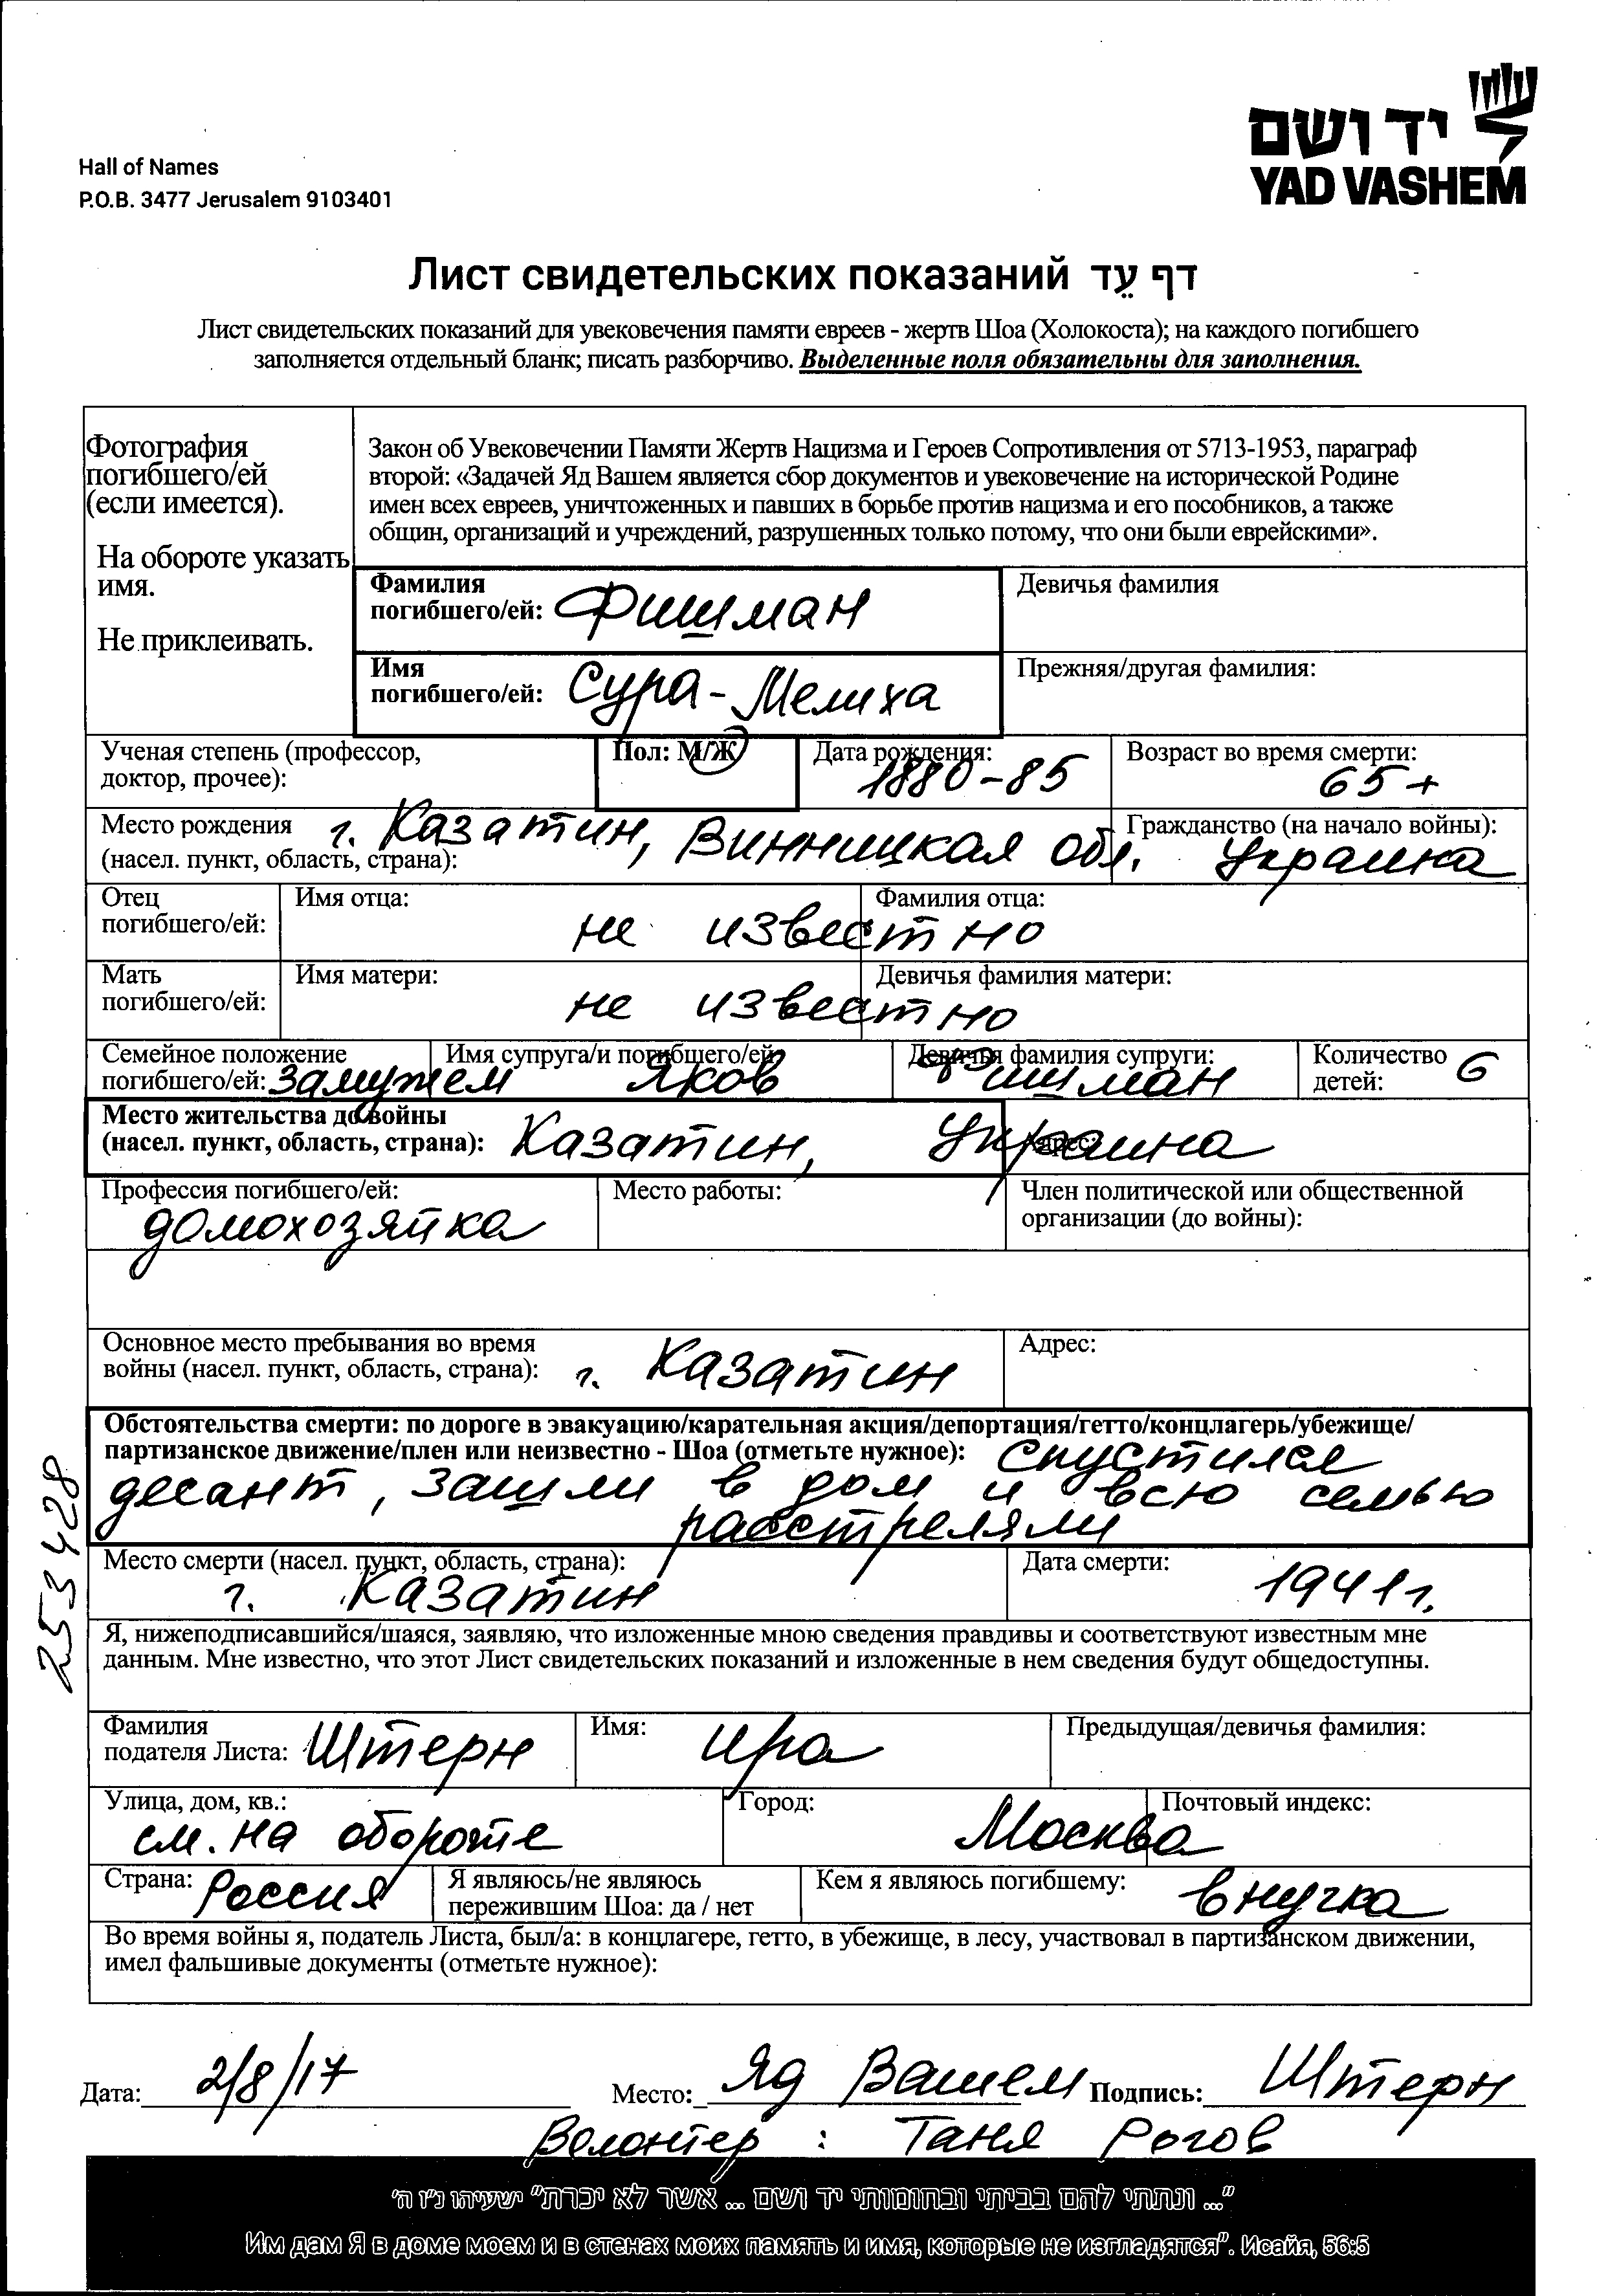 Hall of Names
P.O.B. 3477 Jerusalem 9103401
יד ושם
YAD VASHEM
Лист свидетельских показаний דף עֵד
Лист свидетельских показаний для увековечения памяти евреев - жертв Шоа (Холокоста); на каждого погибшего
заполняется отдельный бланк; писать разборчиво. Выделенные поля обязательны для заполнения.
Фотография
погибшего/ей
(если имеется).
На обороте указать
имя.
Не приклеивать.
Закон об Увековечении Памяти Жертв Нацизма и Героев Сопротивления от 5713-1953, параграф
второй: «Задачей Яд Вашем является сбор документов и увековечение на исторической Родине
имен всех евреев, уничтоженных и павших в борьбе против нацизма и его пособников, а также
общин, организаций и учреждений, разрушенных только потому, что они были еврейскими».
Фамилия
погибшего/ей: Фишман
Девичья фамилия
Имя
погибшего/ей: Сура-Мелиха
Прежняя/другая фамилия:
Ученая степень (профессор,
доктор, прочее):
Пол: М/Ж
Дата рождения:
1880-85
Возраст во время смерти:
65+
Место рождения
(насел. пункт, область, страна): г. Казатин, Винницкая обл.
Гражданство (на начало войны):
Украина
Отец
погибшего/ей:
Имя отца:
Фамилия отца:
не известно
Мать
погибшего/ей:
Имя матери:
Девичья фамилия матери:
не известно
Семейное положение
погибшего/ей: замужем
Имя супруга/и погибшего/ей:
Яков
Девичья фамилия супруги:
Фишман
Количество
детей: 6
Место жительства до войны
(насел. пункт, область, страна): Казатин, Украина
Адрес:
Профессия погибшего/ей:
домохозяйка
Место работы:
Член политической или общественной
организации (до войны):
Основное место пребывания во время
войны (насел. пункт, область, страна): г. Казатин
Адрес:
Обстоятельства смерти: по дороге в эвакуацию/карательная акция/депортация/гетто/концлагерь/убежище/
партизанское движение/плен или неизвестно - Шоа (отметьте нужное): спустился
десант, зашли в дом и всю семью
расстреляли
Место смерти (насел. пункт, область, страна):
г. Казатин
Дата смерти:
1941г.
253428
Я, нижеподписавшийся/шаяся, заявляю, что изложенные мною сведения правдивы и соответствуют известным мне
данным. Мне известно, что этот Лист свидетельских показаний и изложенные в нем сведения будут общедоступны.
Фамилия
подателя Листа: Штерн
Имя: Ира
Предыдущая/девичья фамилия:
Улица, дом, кв.:
см. на обороте
Город:
Москва
Почтовый индекс:
Страна: Россия
Я являюсь/не являюсь
пережившим Шоа: да / нет
Кем я являюсь погибшему:
внучка
Во время войны я, податель Листа, был/а: в концлагере, гетто, в убежище, в лесу, участвовал в партизанском движении,
имел фальшивые документы (отметьте нужное):
Дата: 2/8/17 Место: Яд Вашем Подпись: Штерн
Волонтер: Таня Рогов
"... ונתתי להם בביתי ובחומותי יד ושם ... אשר לא יכרת" ישעיהו נ"ו ה'
Им дам Я в доме моем и в стенах моих память и имя, которые не изгладятся". Исайя, 56:5